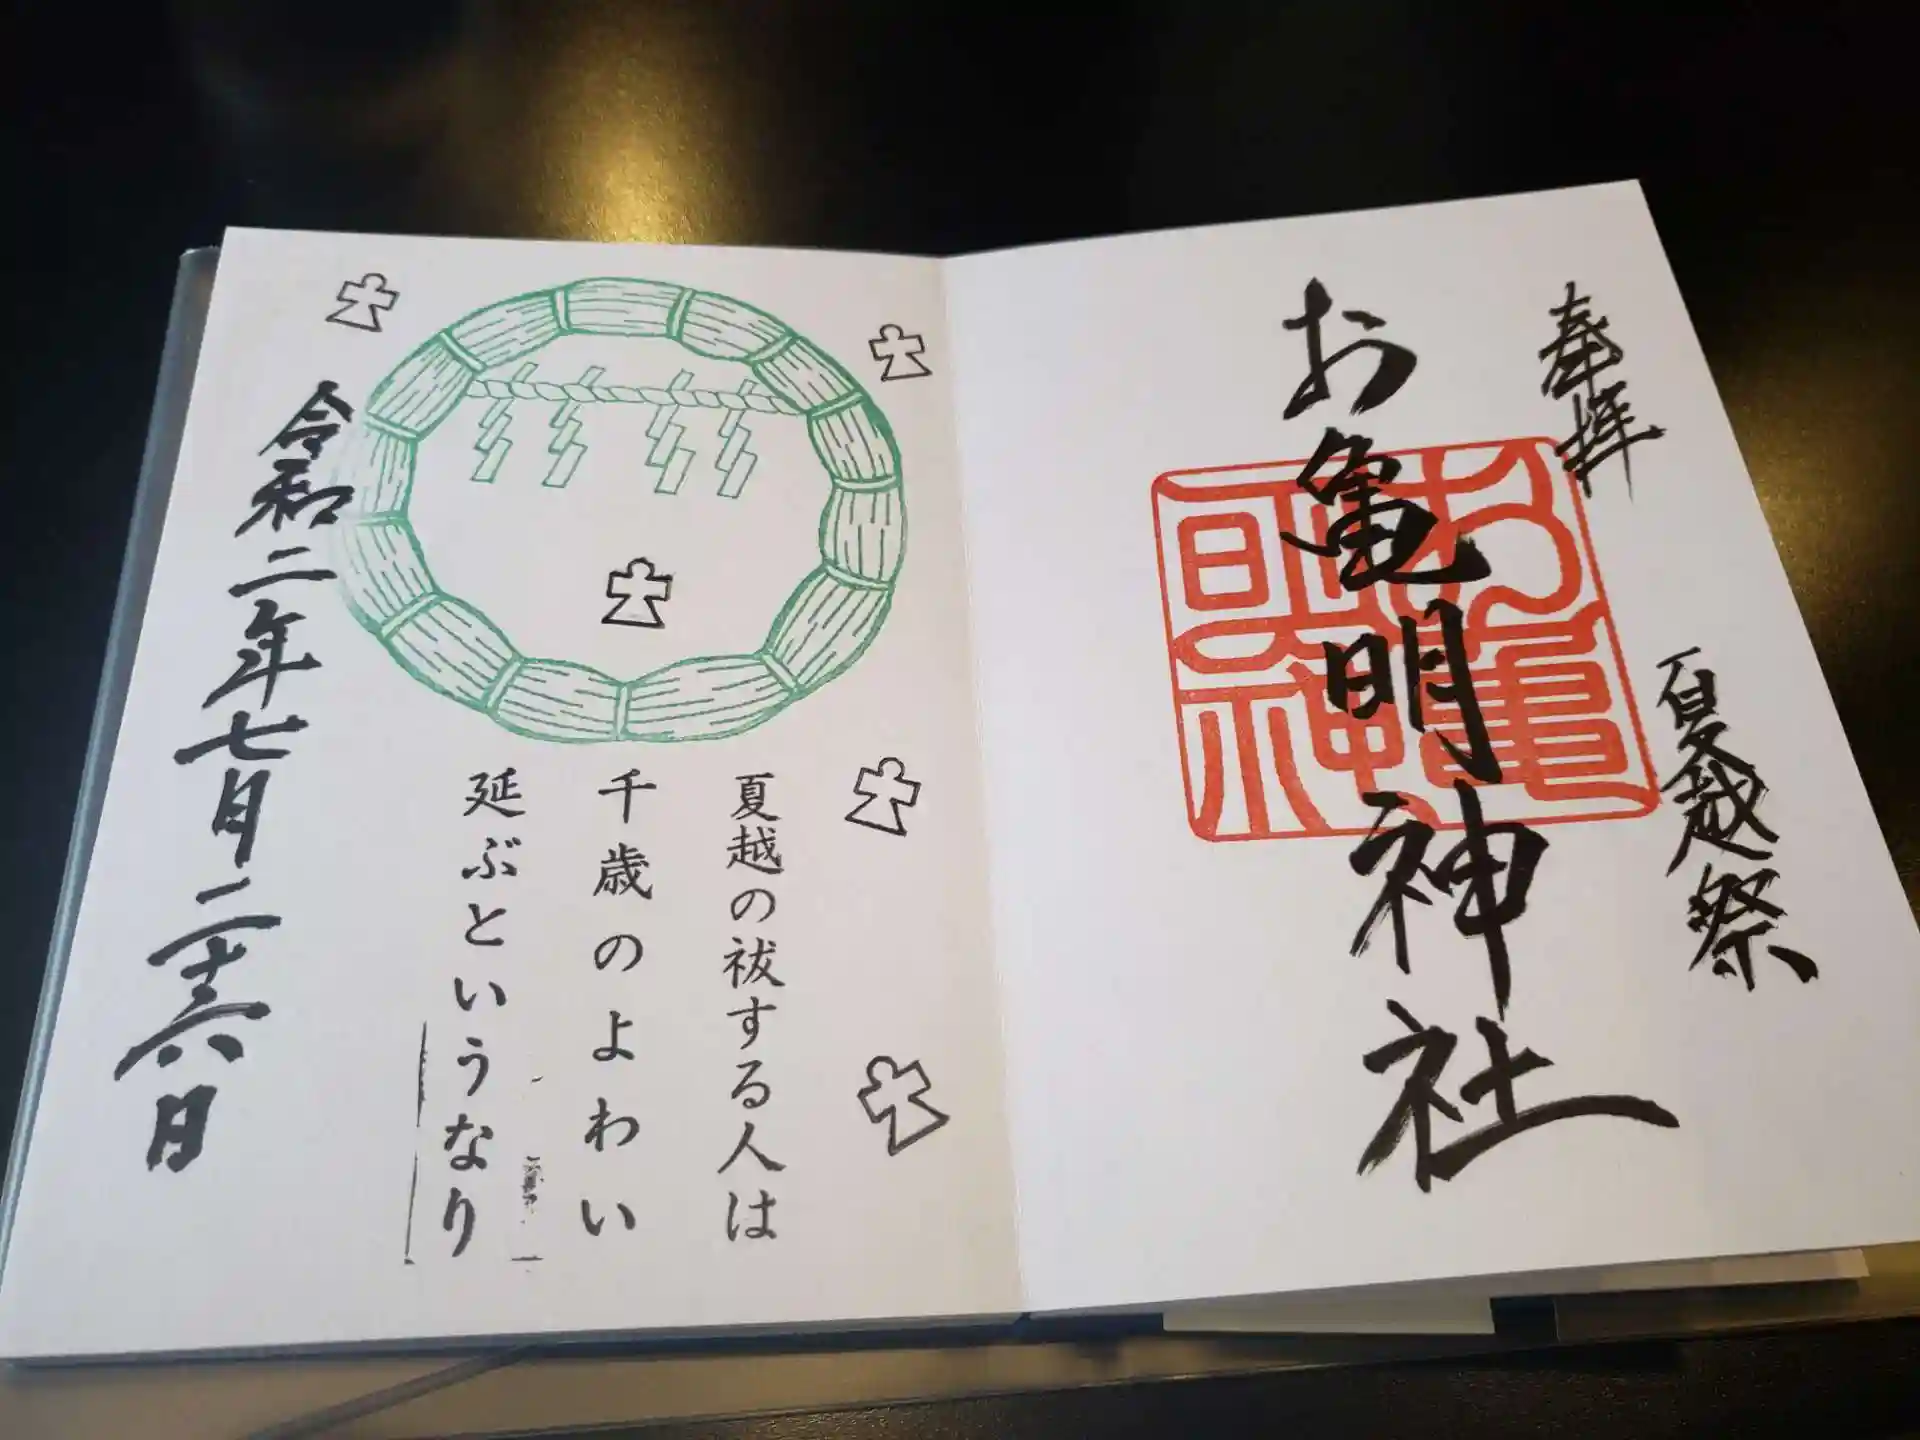 奉拝
夏越祭
お亀明神社
お亀
明神
夏越の祓する人は
千歳のよわい
延ぶというなり
令和二年七月二十六日